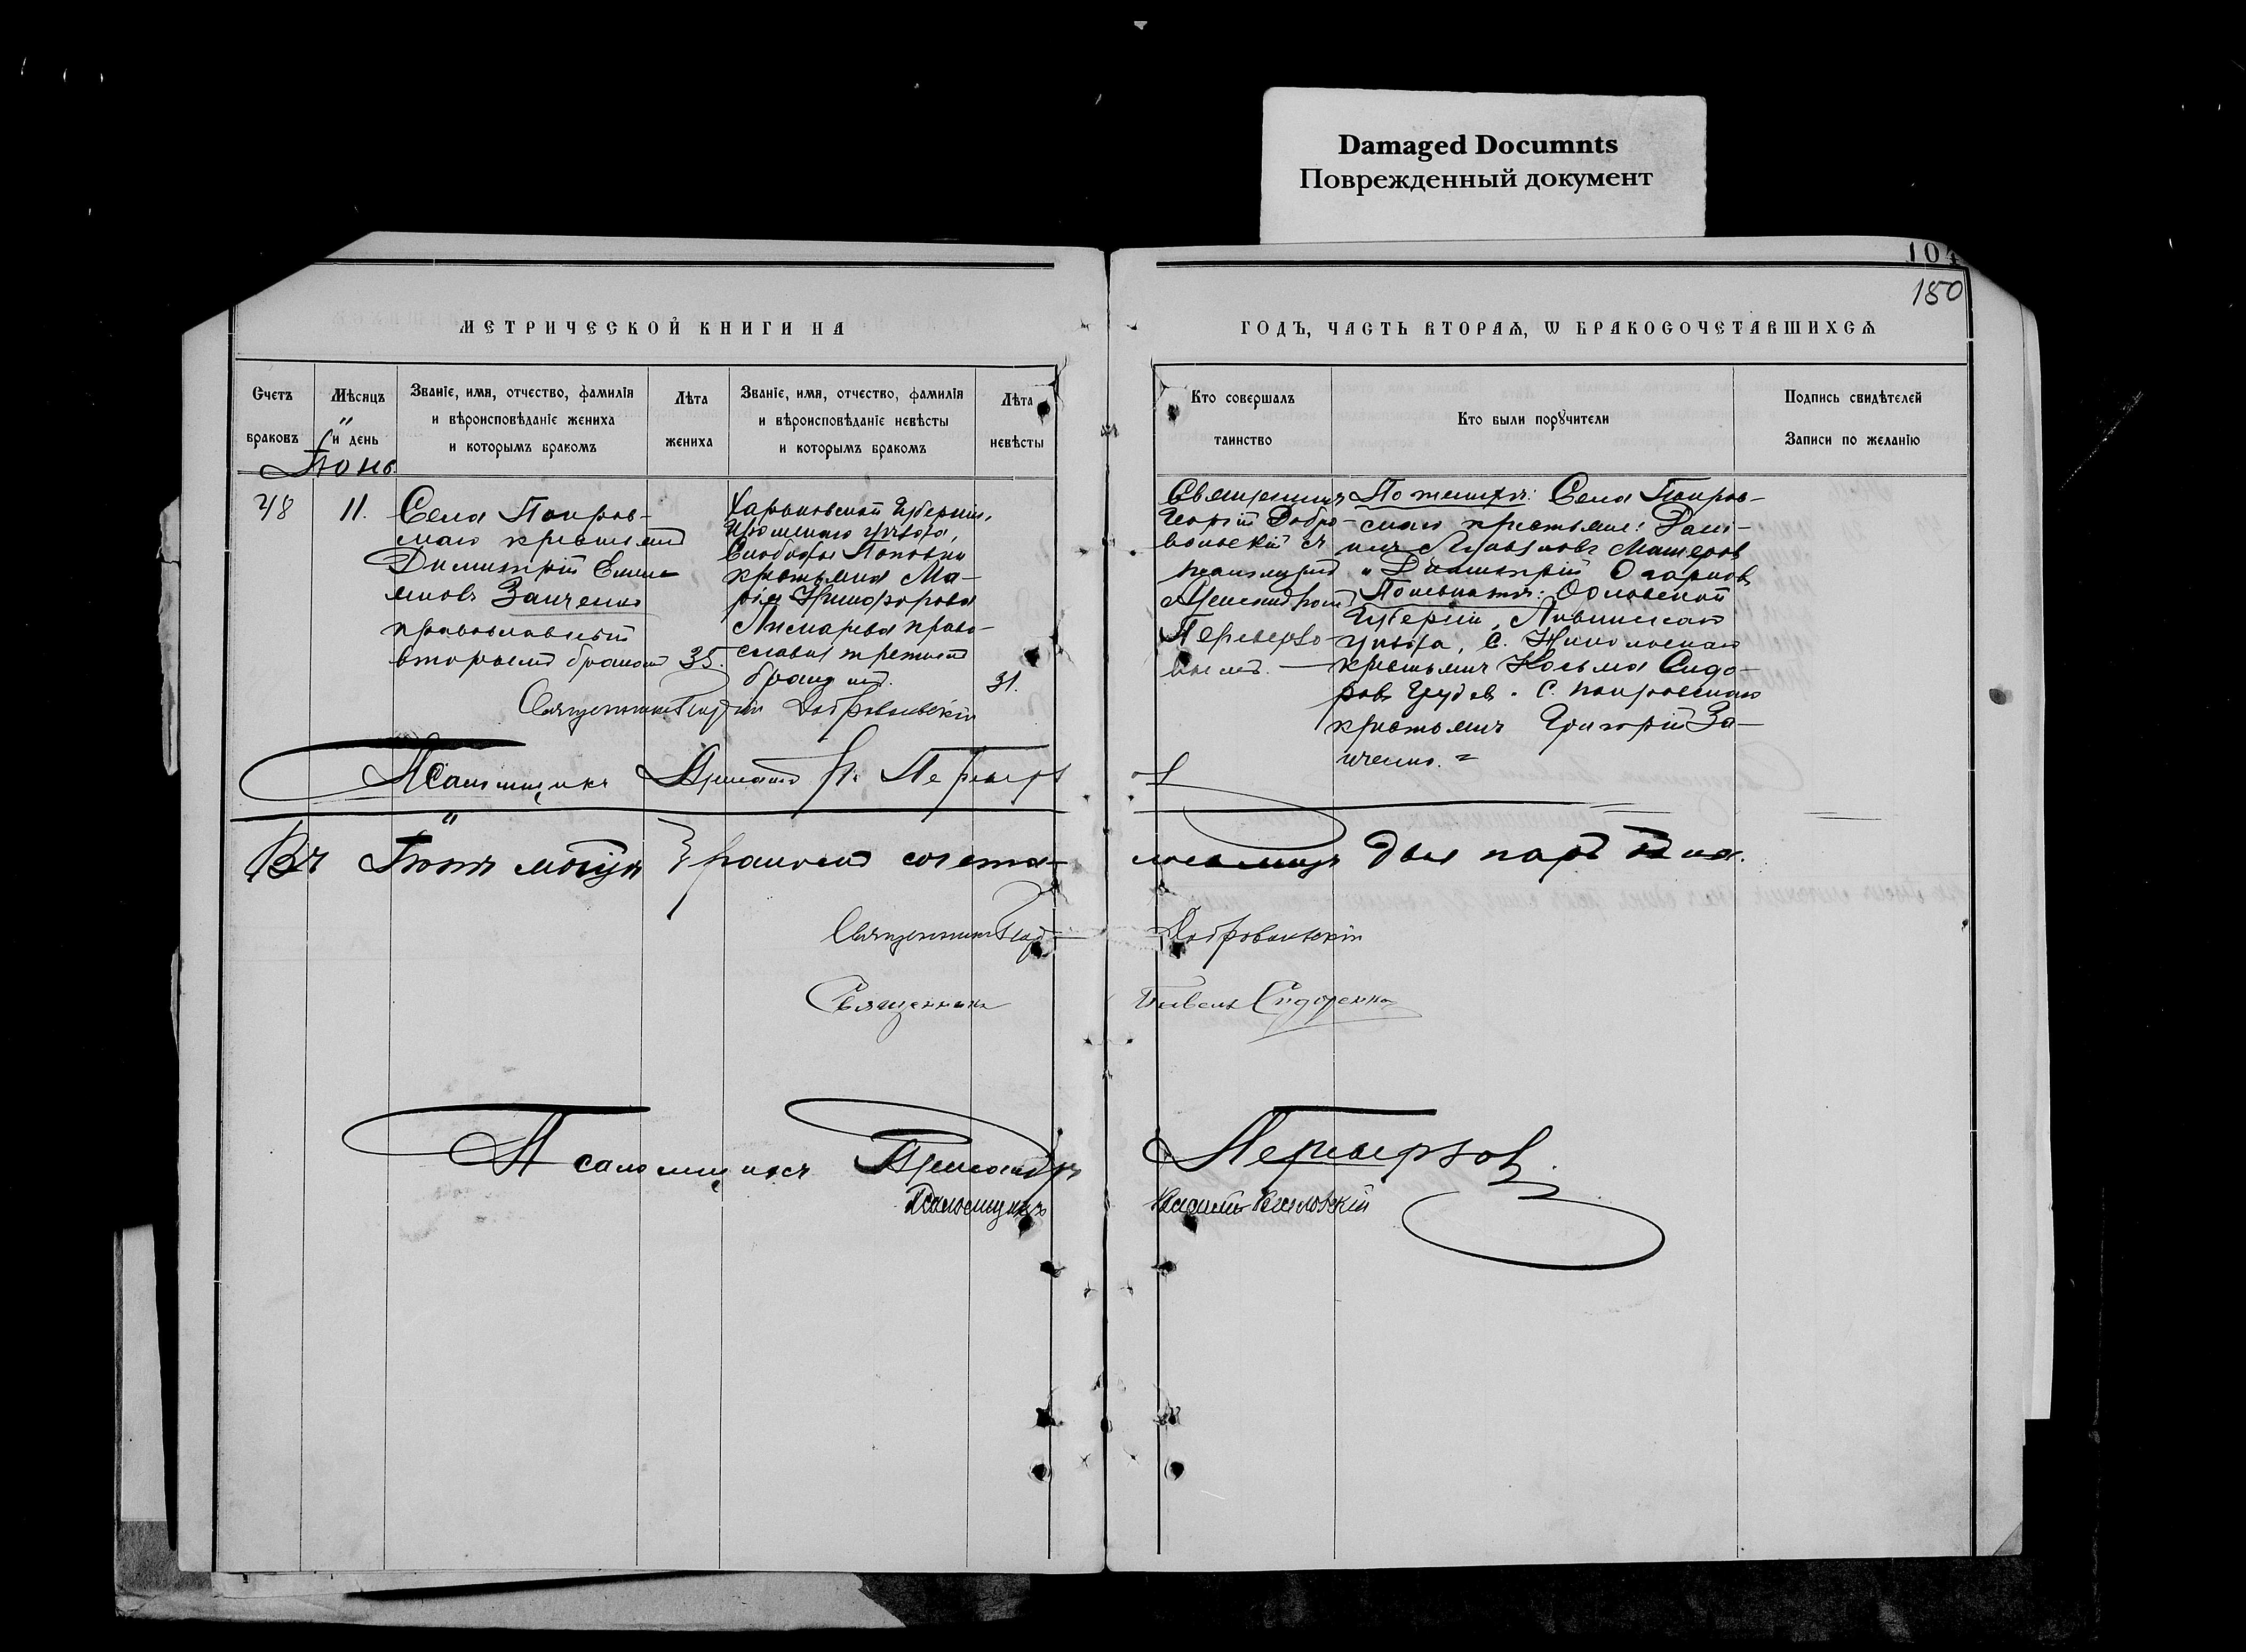 Damaged Documnts
Поврежденный документ
104
180
МЕТРИЧЕСКОЙ КНИГИ НА
ГОДЪ, ЧАСТЬ ВТОРАѦ, Ѡ БРАКОСОЧЕТАВШИХСѦ
Счетъ
браковъ
Мѣсяцъ
и день
Званіе, имя, отчество, фамилія
и вѣроисповѣданіе жениха
и которымъ бракомъ
Лѣта
жениха
Званіе, имя, отчество, фамилія
и вѣроисповѣданіе невѣсты
и которымъ бракомъ
Лѣта
невѣсты
Кто совершалъ
таинство
Кто были порꙋчители
Подпись свидѣтелей
Записи по желанію
48
11.
Села Покров-
скаго крестьянинъ
Димитрій Емель-
яновъ Заиченко
православный
вторымъ бракомъ
35.
Харьковской Губерніи,
уѣзда,
Слободы Поповки
крестьянка Ма-
рія Никифорова
православная третьимъ
бракомъ.
31.
Священникъ
Георгій Добро-
вольскій съ
псаломщикомъ
Александромъ
Переверзе-
вымъ.
По женихѣ: Села Покров-
скаго крестьяне: Дани-
илъ
и Димитрій Огарковъ
По невѣстѣ: Орловской
Губерніи, Ливенскаго
уѣзда, С. Никольскаго
крестьянинъ Косьма Сидо-
ровъ С. Покровскаго
крестьянинъ Григорій За-
иченко.
Священникъ Георгій Добровольскій
Псаломщикъ Александръ Переверзевъ
Въ бракомъ сочета-
двѣ пары
Священникъ Георгій Добровольскій
Священникъ Павелъ Сидоренко
Псаломщикъ Александръ Переверзевъ
Псаломщикъ